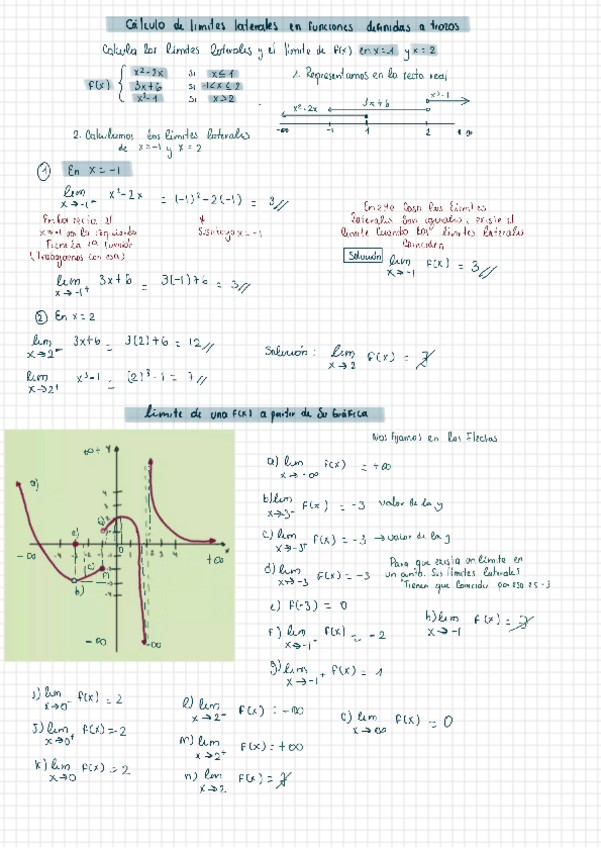 Cálculo de límites laterales en funciones definidas a trozos
Calcula los límites laterales y el límite de f(x) en x=-1 y x=2
f(x) { x²-2x si x≤1
3x+6 si -1<x≤2
x³-1 si x>2
1. Representamos en la recta real
x²-2x 3x+6 x³-1
-∞ 1 2 +∞
2. Calculamos los límites laterales
de x=-1 y x=2
1 En x=-1
lim x→-1⁻ x²-2x = (-1)²-2(-1) = 3//
x→-1 por la izquierda
Tiene la función
(Trabajamos con esa)
Sustituyo x=-1
En este caso los límites
laterales son iguales, existe el
límite cuando los límites laterales
coinciden
lim x→-1⁺ 3x+6 = 3(-1)+6 = 3//
Solución lim x→-1 f(x) = 3//
2 En x=2
lim x→2⁻ 3x+6 = 3(2)+6 = 12//
lim x→2⁺ x³-1 = (2)³-1 = 7//
Solución: lim x→2 f(x) = ∄
límite de una f(x) a partir de su gráfica
Nos fijamos en las flechas
a) lim x→-∞ f(x) = +∞
b) lim x→-3⁻ f(x) = -3 valor de la y
c) lim x→-3⁺ f(x) = -3 → valor de la y
d) lim x→-3 f(x) = -3
Para que exista un límite en
un punto. Sus límites laterales
tienen que coincidir por eso es -3
e) f(-3) = 0
f) lim x→-1⁻ f(x) = -2
g) lim x→-1⁺ f(x) = 1
h) lim x→-1 f(x) = ∄
i) lim x→0⁻ f(x) = 2
j) lim x→0⁺ f(x) = 2
k) lim x→0 f(x) = 2
l) lim x→2⁻ f(x) = -∞
m) lim x→2⁺ f(x) = +∞
n) lim x→2 f(x) = ∄
lim x→∞ f(x) = 0